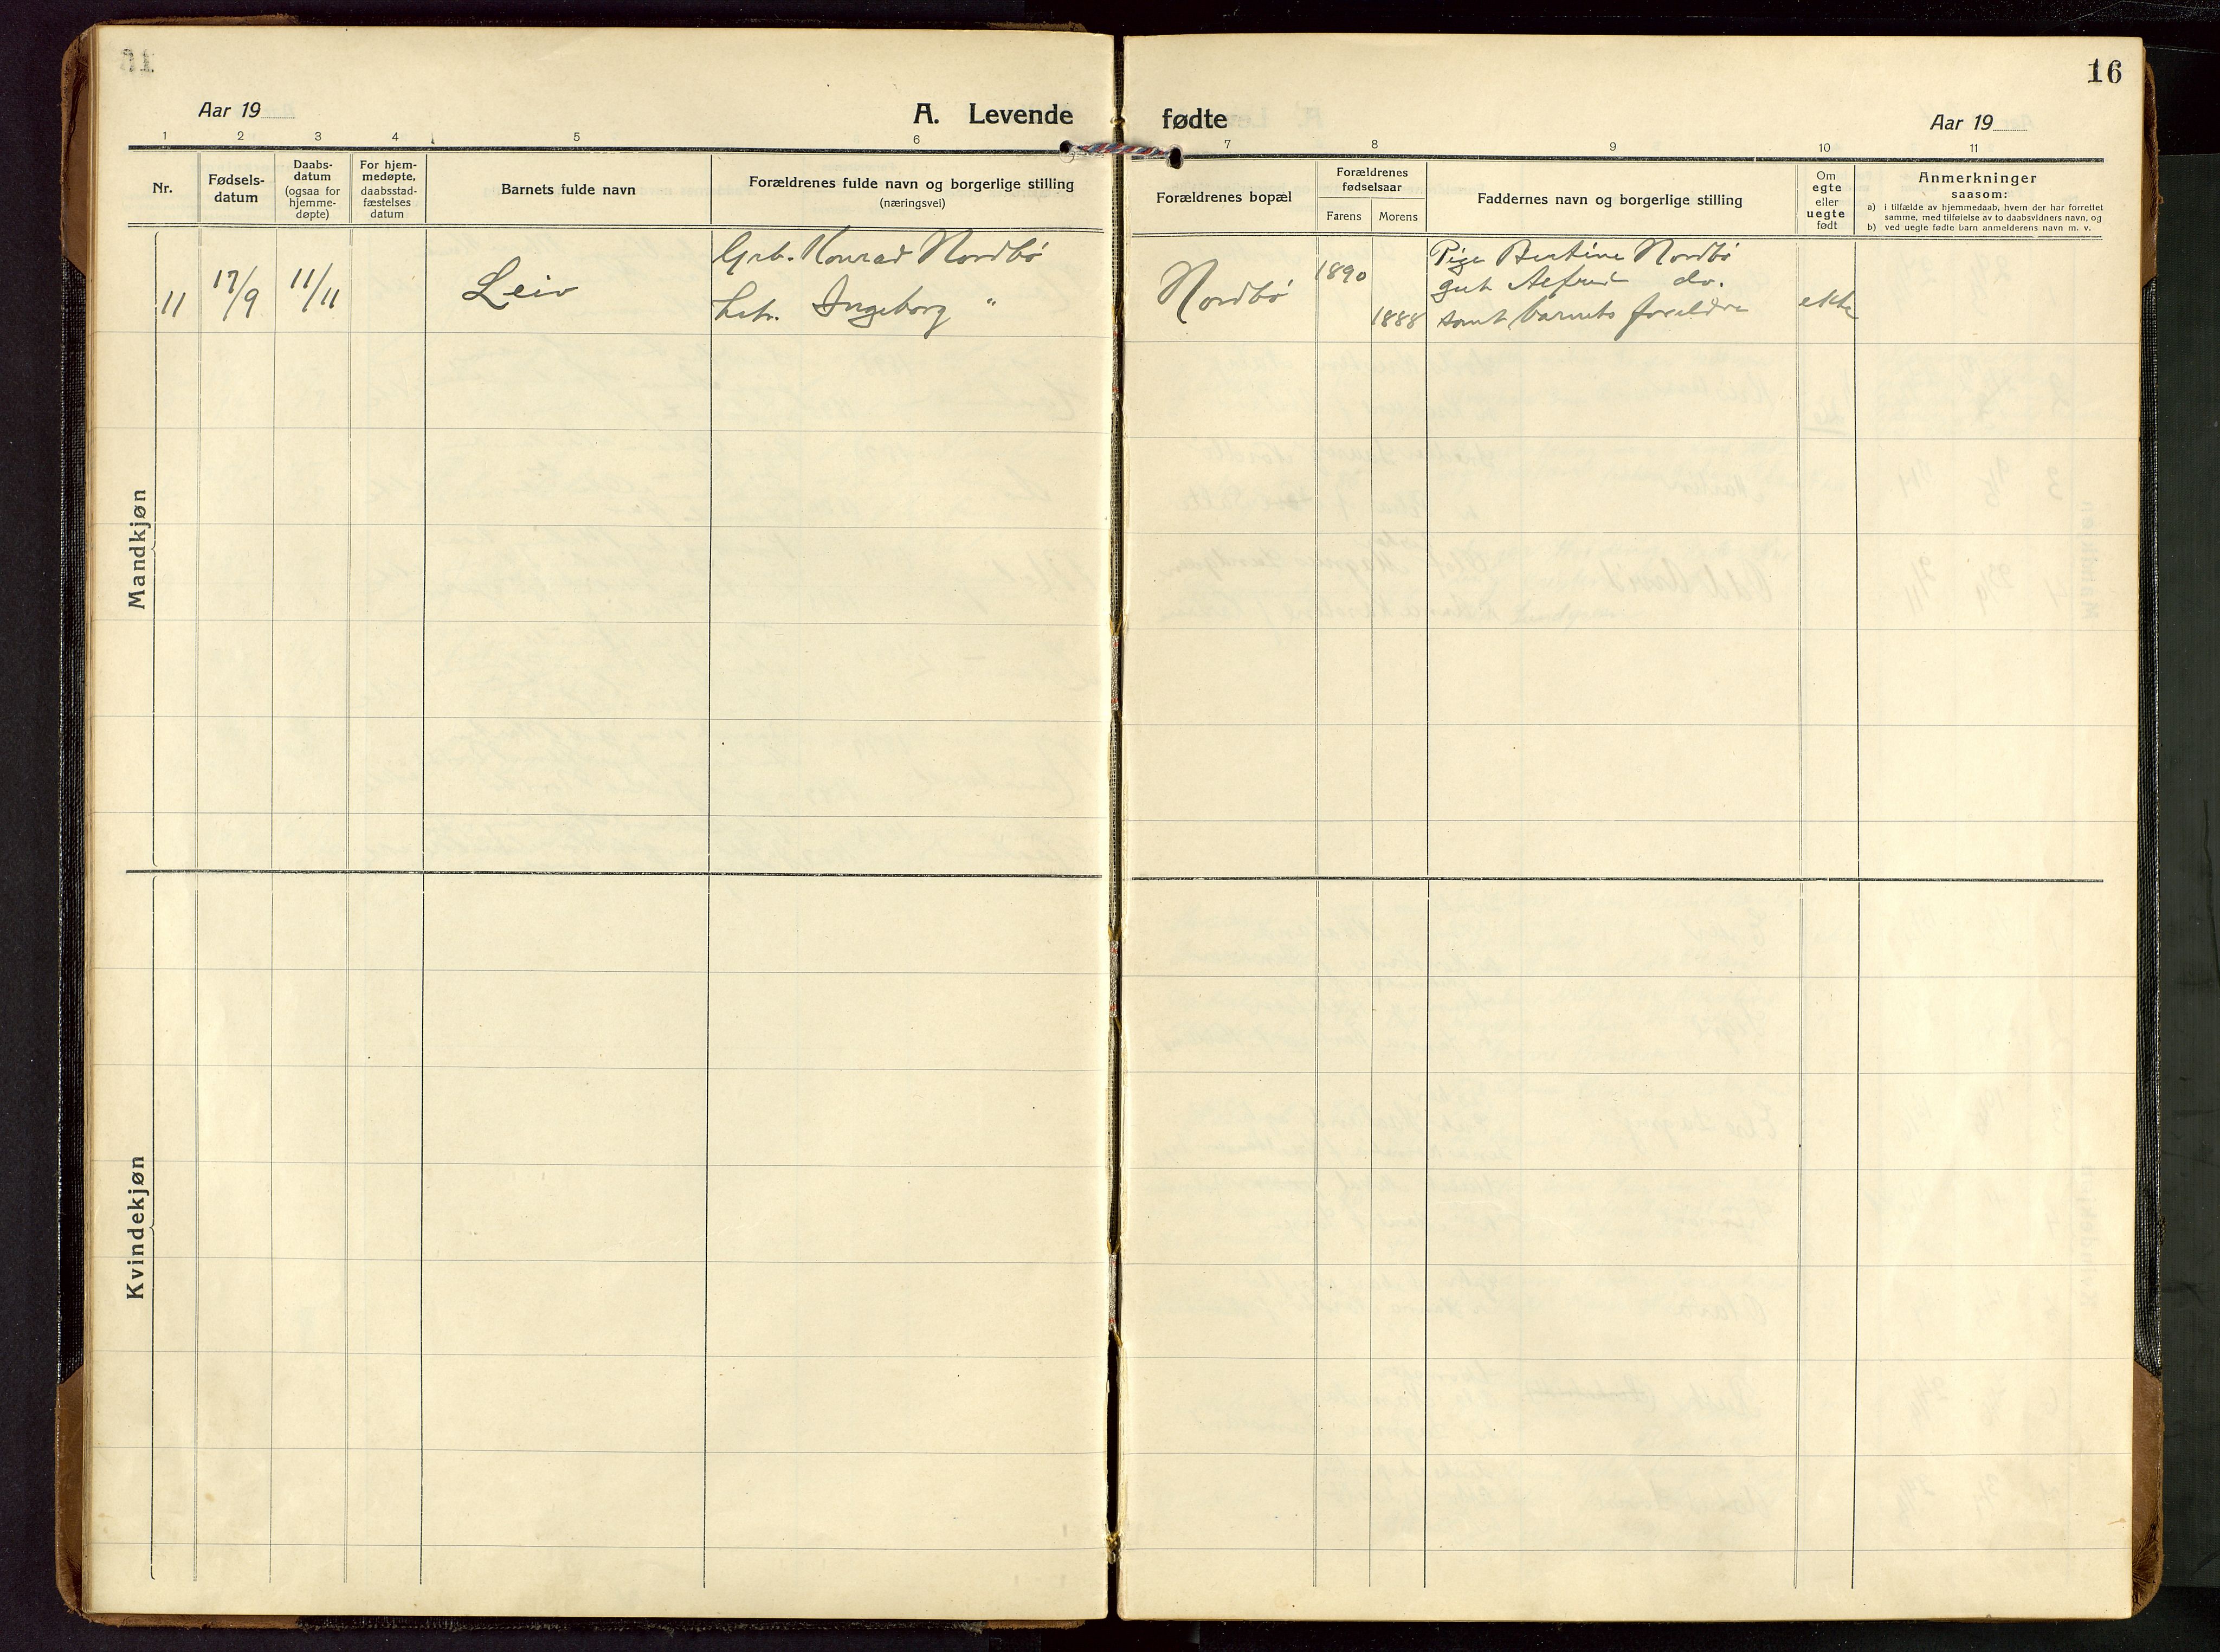 16
Aar 19
A. Levende fødte
Aar 19
1 2 3 4 5 6 7 8 9 10 11
Nr.
Fødsels-
datum
Daabs-
datum
(ogsaa for
hjemme-
døpte)
For hjem-
medøpte,
daabsstad-
fæstelses
datum
Barnets fulde navn
Forældrenes fulde navn og borgerlige stilling
(næringsvei)
Forældrenes bopæl
Forældrenes
fødselsaar
Farens Morens
Faddernes navn og borgerlige stilling
Om
egte
eller
uegte
født
Anmerkninger
saasom:
a) i tilfælde av hjemmedaab, hvem der har forrettet
samme, med tilføielse av to daabsvidners navn, og
b) ved uegte fødte barn anmelderens navn m. v.
Mandkjøn
11
17/9
11/11
Leiv
Grb. Konrad Nordbö
Ingeborg "
Nordbö
1890
1888
Pige Bertine Nordbö
gut Alfred do.
samt barnets foreldre
ekte
Kvindekjøn